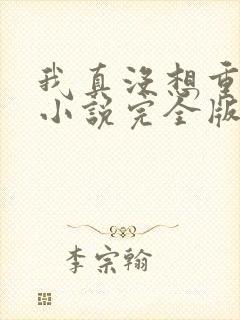 我真没想重
小说完全版
李宗翰